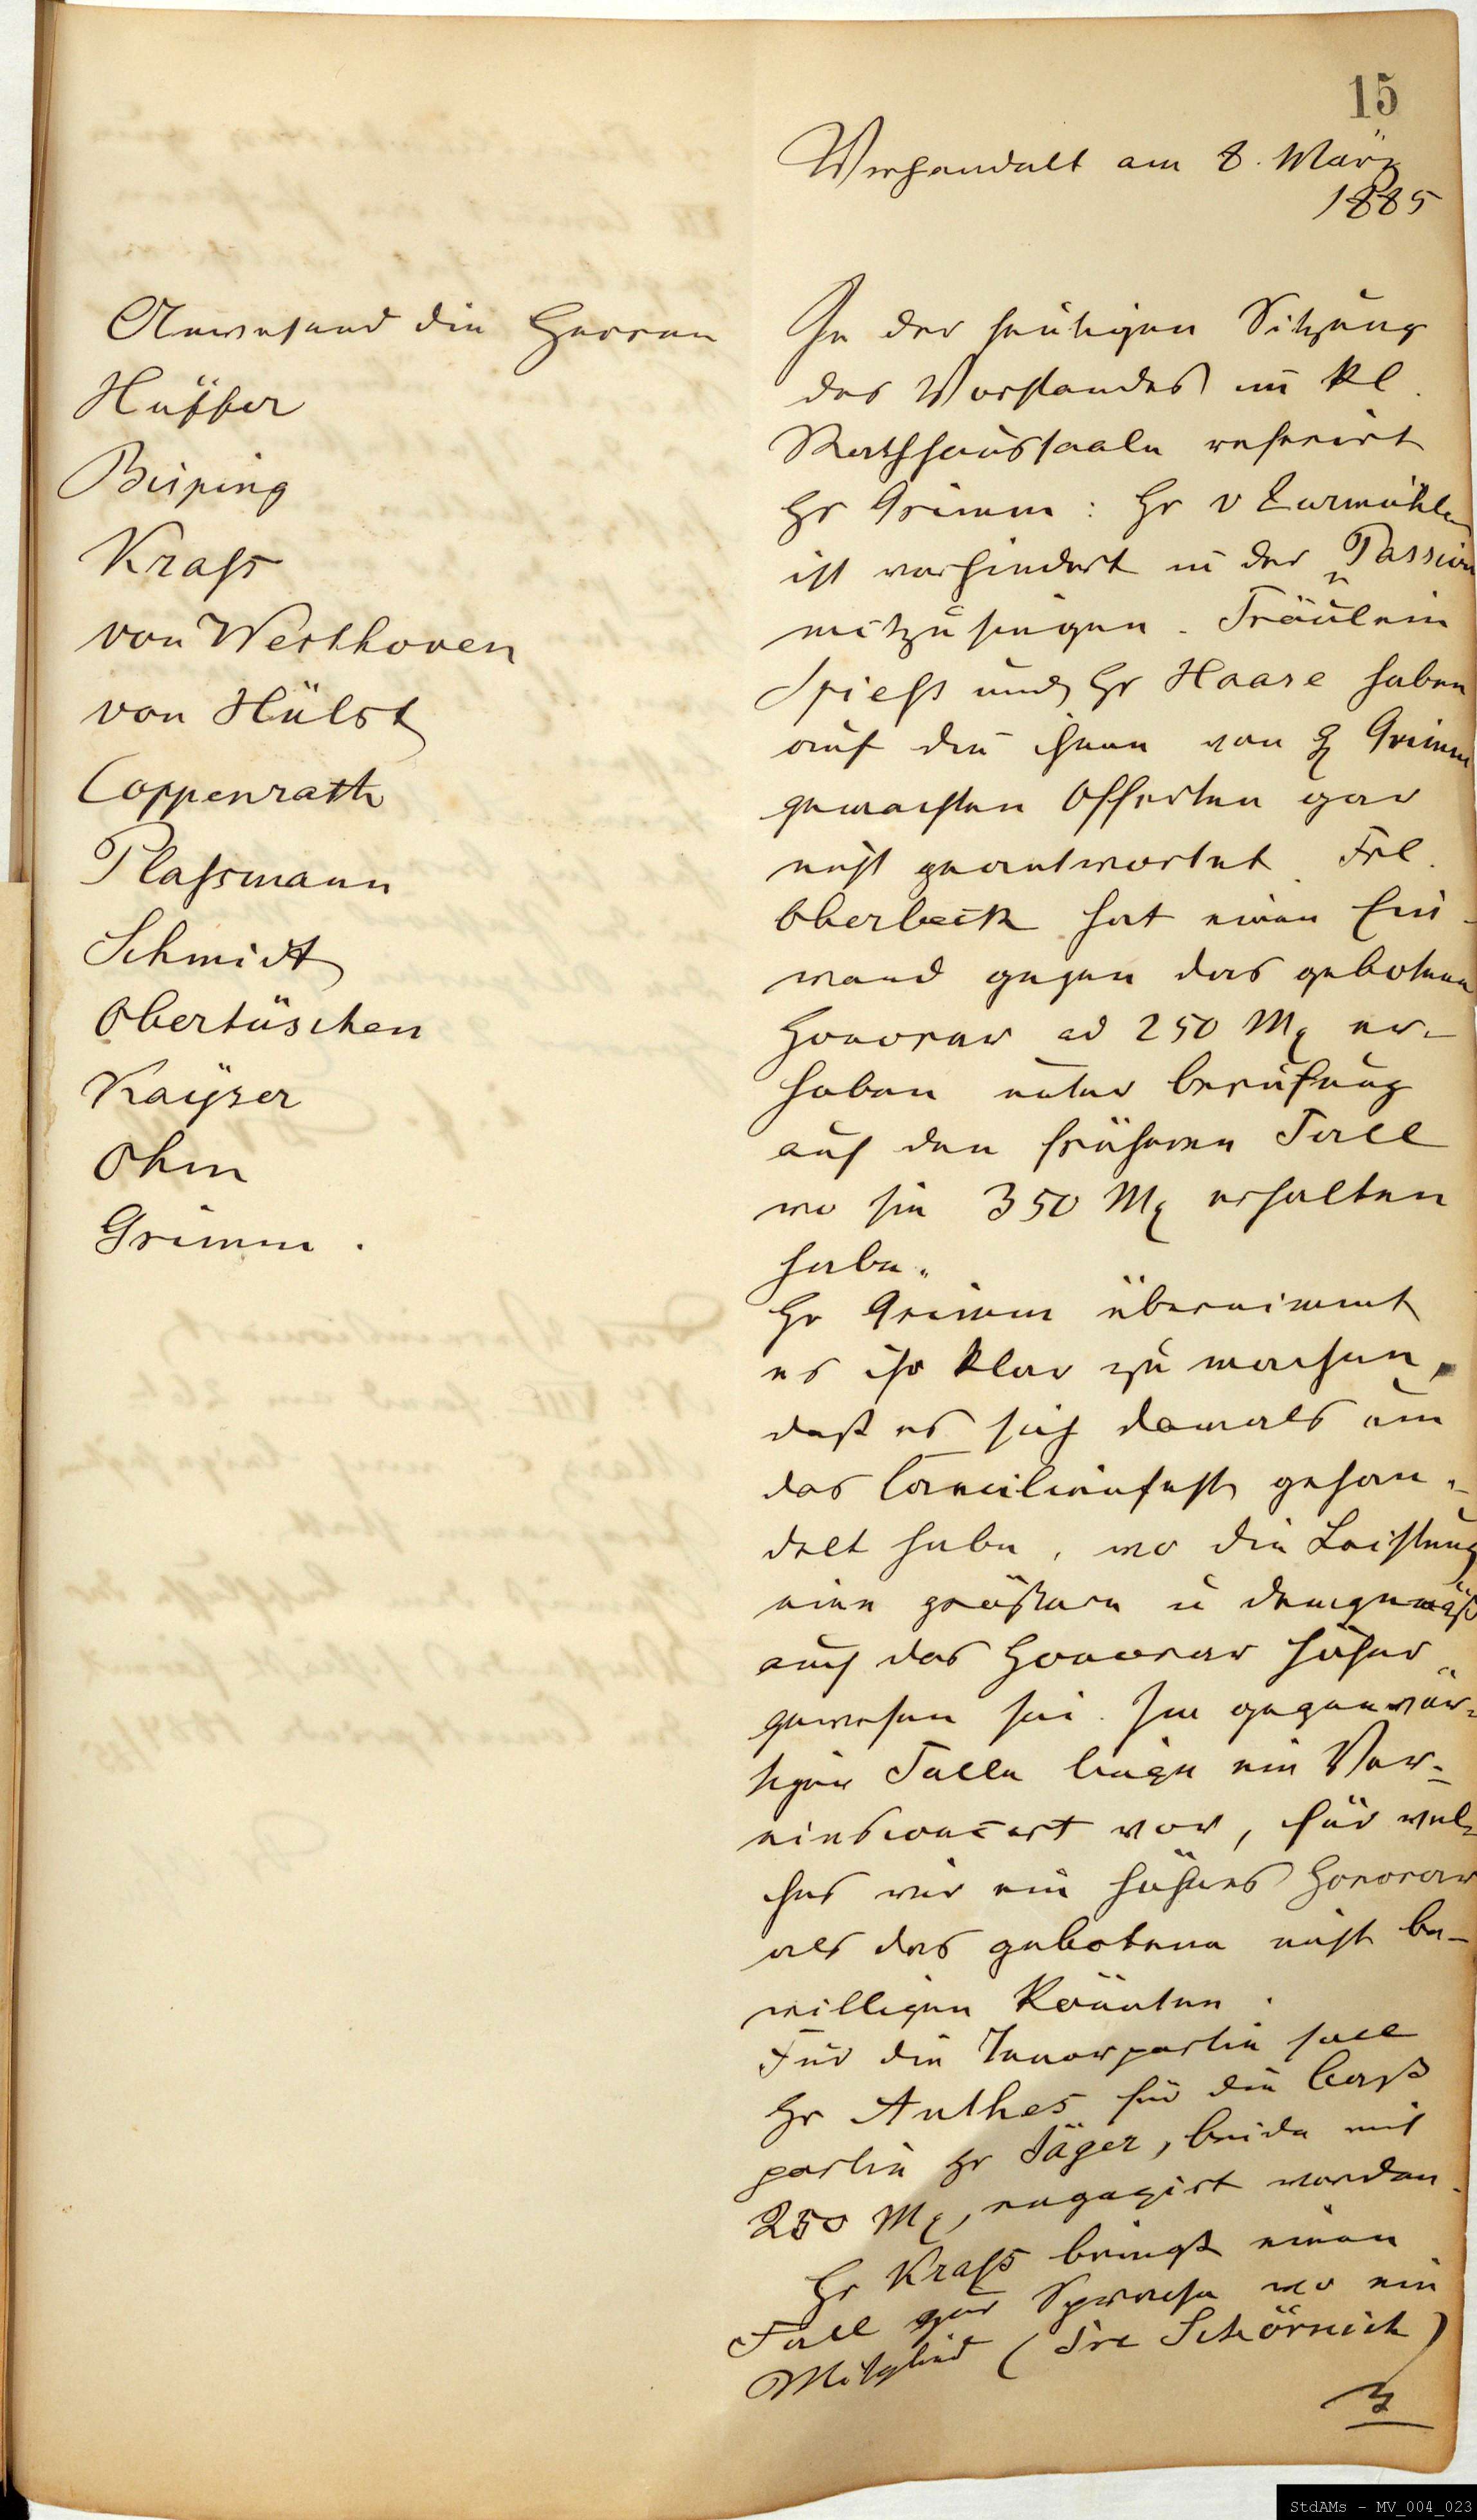 15
Verhandelt am 8. März
1885
Anwesend die Herren
Hüffer
Bisping
Krass
von Westhoven
von Hülst
Coppenrath
Plassmann
Schmidt
Obertüschen
Kayser
Ohm
Grimm.
In der heutigen Sitzung
des Vorstandes im kl.
Rathhaussaale referirt
Hr Grimm: Hr v Zurmühlen
ist verhindert in der Passion
mitzusingen. Fräulein
Spiess und Hr Haase haben
auf die ihnen von H Grimm
gemachten Offerten gar
nicht geantwortet. Frl.
Oberbeck hat einen Ein-
wand gegen das gebotene
Honorar ad 250 Mk er-
hoben unter Berufung
auf den früheren Fall
wo sie 350 Mk erhalten
habe.
Hr Grimm übernimmt
es ihr klar zu machen,
daß es sich damals um
das Caecilienfest gehan-
delt habe, wo die Leistung
eine größere u demgemäß
auch das Honorar höher
gewesen sei. Im gegenwär-
tigen Falle liege ein Ver-
einsconcert vor, für wel-
ches wir ein höheres Honorar
als das gebotene nicht be-
willigen könnten.
Für die Tenorpartie soll
Hr Anthes für die Baß
partie Hr Jäger, beide mit
250 Mk, engagirt werden.
Hr Krass bringt einen
Fall zur Sprache wo ein
Mitglied (Frl Schörnick)
StdAMs - MV_004_023